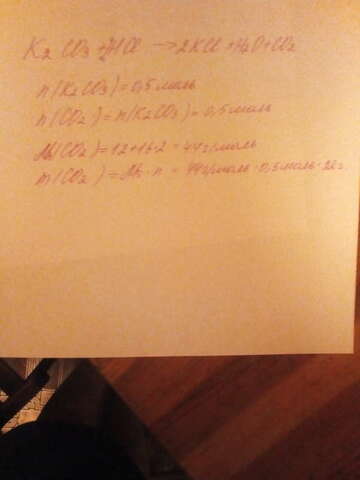 K₂CO₃ + 2HCl → 2KCl + H₂O + CO₂
n(K₂CO₃) = 0,5 моль
n(CO₂) = n(K₂CO₃) = 0,5 моль
M(CO₂) = 12 + 16·2 = 44 г/моль
m(CO₂) = M·n = 44 г/моль · 0,5 моль = 22 г.